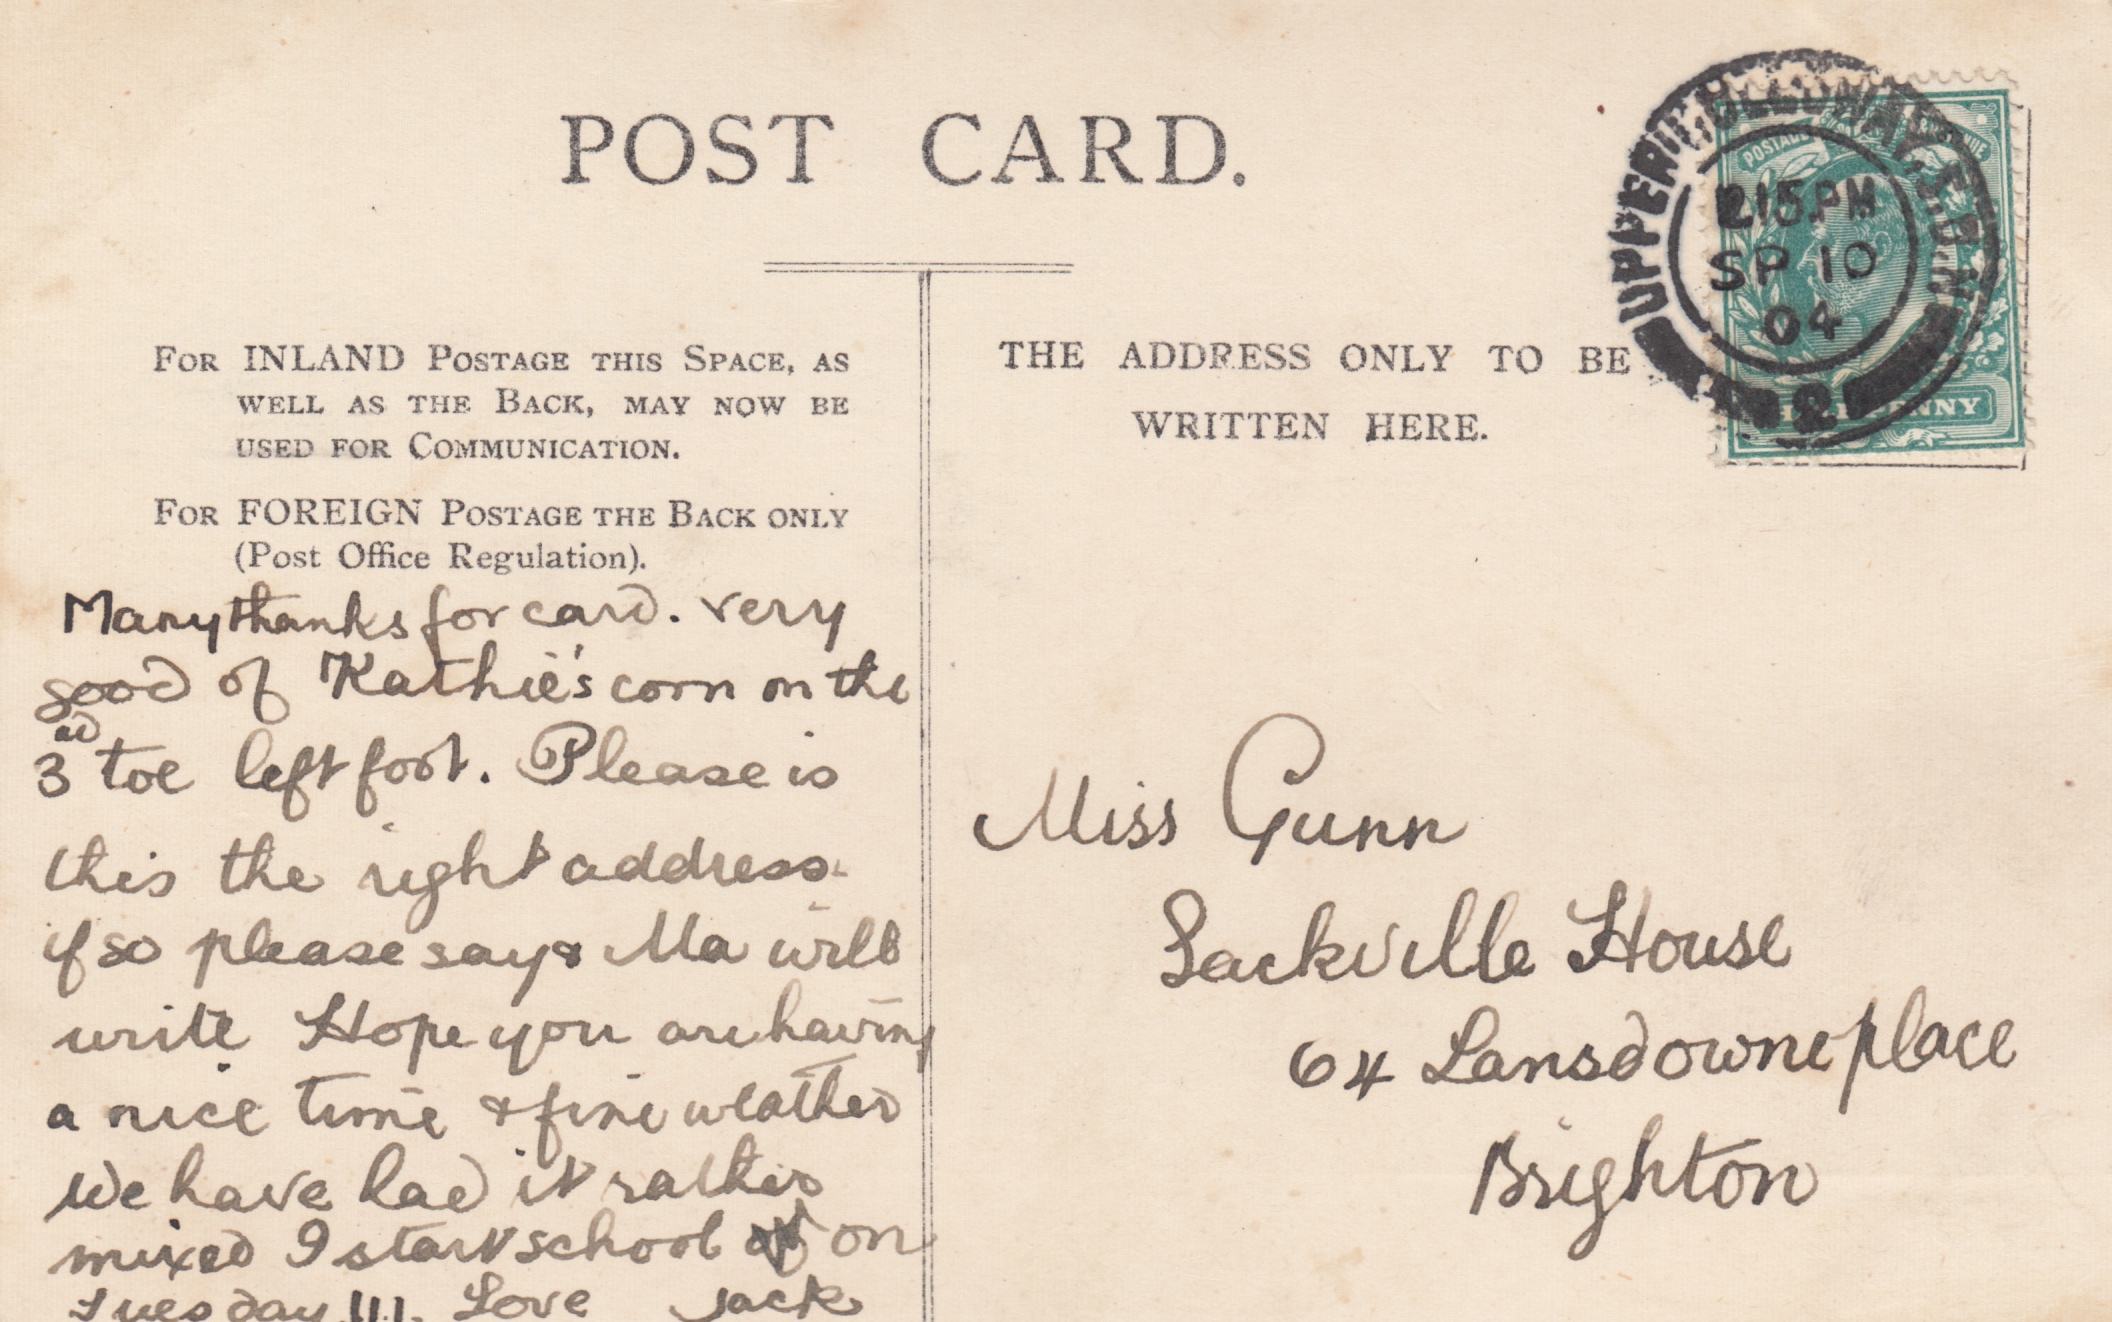 POST CARD.
FOR INLAND POSTAGE THIS SPACE, AS
WELL AS THE BACK, MAY NOW BE
USED FOR COMMUNICATION.
FOR FOREIGN POSTAGE THE BACK ONLY
(Post Office Regulation).
THE ADDRESS ONLY TO BE
WRITTEN HERE.
UPPER HOLLOWAY. S.O.N
2.15.PM
SP 10
04
2
POSTAGE REVENUE
HALFPENNY
Many thanks for card. very
good of Kathie's corn on the
3rd toe left foot. Please is
this the right address.
if so please say & Ma will
write Hope you are having
a nice time & fine weather
We have had it rather
mixed I start school on
Tuesday !!!. Love Jack
Miss Gunn
Sackville House
64 Lansdowne place
Brighton